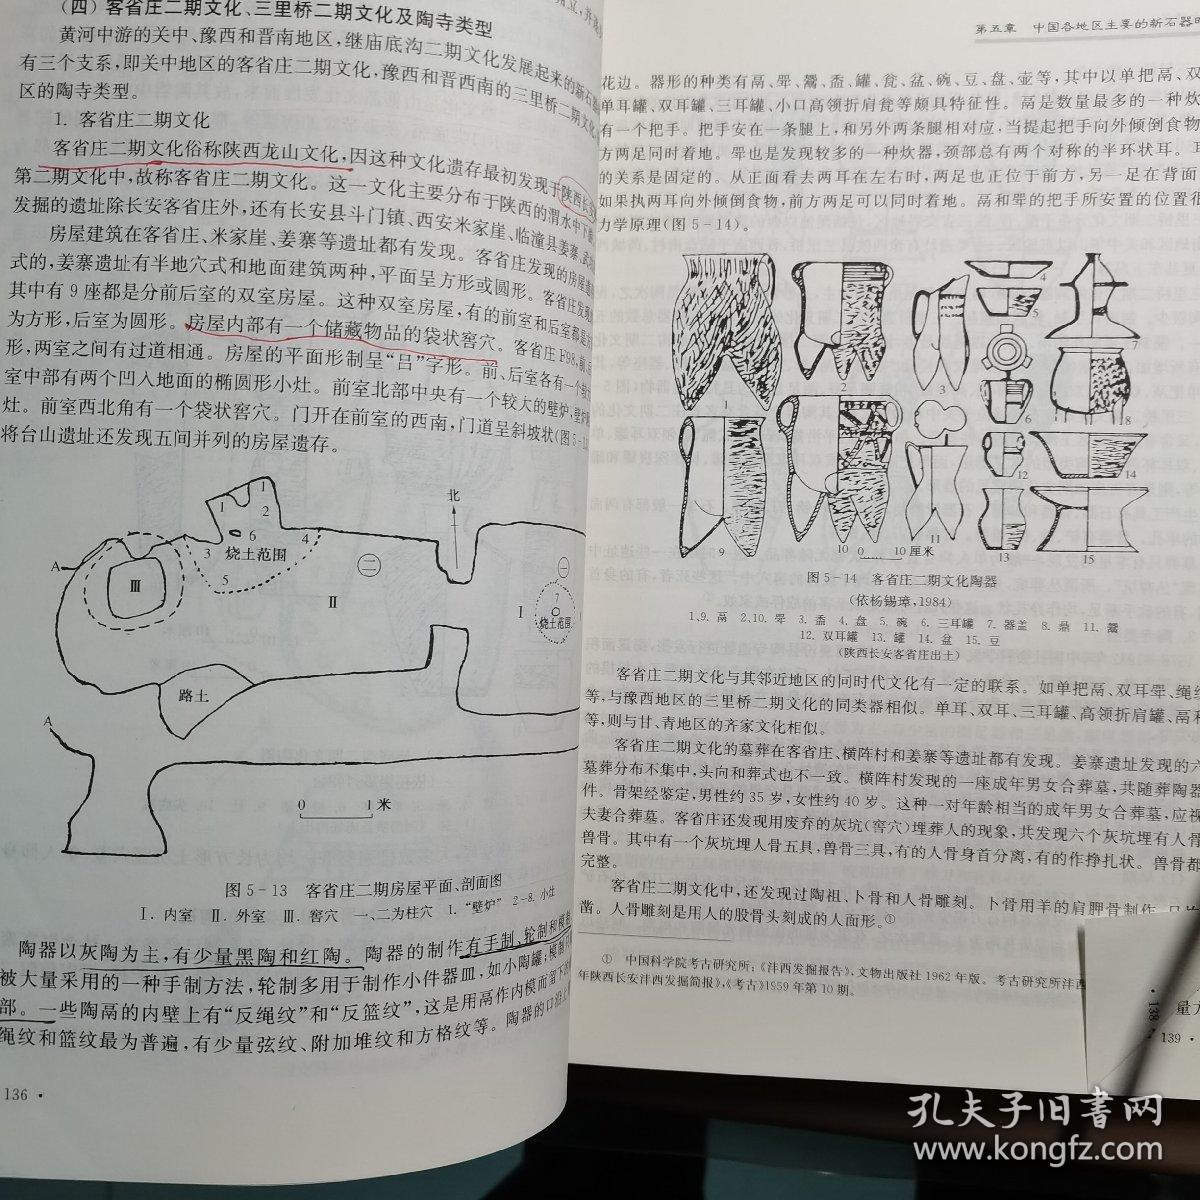 (四) 客省庄二期文化、三里桥二期文化及陶寺类型
黄河中游的关中、豫西和晋南地区，继庙底沟二期文化发展起来的新石器
有三个支系，即关中地区的客省庄二期文化，豫西和晋西南的三里桥二期文化
区的陶寺类型。
1. 客省庄二期文化
客省庄二期文化俗称陕西龙山文化，因这种文化遗存最初发现于陕西长安
第二期文化中，故称客省庄二期文化。这一文化主要分布于陕西的渭水中下
发掘的遗址除长安客省庄外，还有长安县斗门镇、西安米家崖、临潼县姜寨、武功
房屋建筑在客省庄、米家崖、姜寨等遗址都有发现。客省庄发现的房屋
式的，姜寨遗址有半地穴式和地面建筑两种，平面呈方形或圆形。客省庄发现
其中有 9 座都是分前后室的双室房屋。这种双室房屋，有的前室和后室都是
为方形，后室为圆形。房屋内部有一个储藏物品的袋状窖穴。客省庄 F98，前
形，两室之间有过道相通。房屋的平面形制呈“吕”字形。前、后室各有一个
室中部有两个凹入地面的椭圆形小灶。前室北部中央有一个较大的壁炉，
灶。前室西北角有一个袋状窖穴。门开在前室的西南，门道呈斜坡状(图 5-1
将台山遗址还发现五间并列的房屋遗存。
北
1
1
2
6
3
4
烧土范围
5
A
Ⅲ
二
Ⅱ
Ⅰ
一
7
烧土范围
路土
A
0 1 米
图 5-13 客省庄二期房屋平面、剖面图
Ⅰ. 内室 Ⅱ. 外室 Ⅲ. 窖穴 一、二为柱穴 1. “壁炉” 2-8. 小灶
陶器以灰陶为主，有少量黑陶和红陶。陶器的制作有手制、轮制和模制
被大量采用的一种手制方法，轮制多用于制作小件器皿，如小陶罐；模制
部。一些陶鬲的内壁上有“反绳纹”和“反篮纹”，这是用鬲作内模而留下的
绳纹和篮纹最为普遍，有少量弦纹、附加堆纹和方格纹等。陶器的口沿上
136 ·
第五章 中国各地区主要的新石器时
花边。器形的种类有鬲、斝、鬶、盉、罐、瓮、盆、碗、豆、盘、壶等，其中以单把鬲、双
单耳罐、双耳罐、三耳罐、小口高领折肩瓮等颇具特征性。鬲是数量最多的一种炊
有一个把手。把手安在一条腿上，和另外两条腿相对应，当提起把手向外倾倒食物
方两足同时着地。斝也是发现较多的一种炊器，颈部总有两个对称的半环状耳。耳
的关系是固定的。从正面看去两耳在左右时，两足也正位于前方，另一足在背面
如果执两耳向外倾倒食物，前方两足可以同时着地。鬲和斝的把手所安置的位置很
力学原理(图 5-14)。
1
2
3
4
5
6
7
8
9
10
11
12
13
14
15
0 10 厘米
图 5-14 客省庄二期文化陶器
(依杨锡璋，1984)
1、9. 鬲 2、10. 斝 3. 盉 4. 盘 5. 碗 6. 三耳罐 7. 器盖 8. 鼎 11. 鬶
12. 双耳罐 13. 罐 14. 盆 15. 豆
(陕西长安客省庄出土)
客省庄二期文化与其邻近地区的同时代文化有一定的联系。如单把鬲、双耳斝、绳纹
等，与豫西地区的三里桥二期文化的同类器相似。单耳、双耳、三耳罐、高领折肩罐、鬲和
等，则与甘、青地区的齐家文化相似。
客省庄二期文化的墓葬在客省庄、横阵村和姜寨等遗址都有发现。姜寨遗址发现的六
墓葬分布不集中，头向和葬式也不一致。横阵村发现的一座成年男女合葬墓，共随葬陶器
件。骨架经鉴定，男性约 35 岁，女性约 40 岁。这种一对年龄相当的成年男女合葬墓，应视
夫妻合葬墓。客省庄还发现用废弃的灰坑(窖穴)埋葬人的现象，共发现六个灰坑埋有人骨
兽骨。其中有一个灰坑埋人骨五具，兽骨三具，有的人骨身首分离，有的作挣扎状。兽骨都
完整。
客省庄二期文化中，还发现过陶祖、卜骨和人骨雕刻。卜骨用羊的肩胛骨制作，
凿。人骨雕刻是用人的股骨头刻成的人面形。①
① 中国科学院考古研究所：《沣西发掘报告》，文物出版社 1962 年版。考古研究所沣西
年陕西长安沣西发掘简报》，《考古》1959 年第 10 期。
· 138 ·
量
· 139 ·
孔夫子旧书网
www.kongfz.com